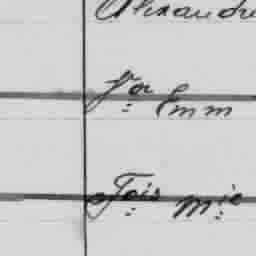 Alexandre
Jos Emm
Fois Mie